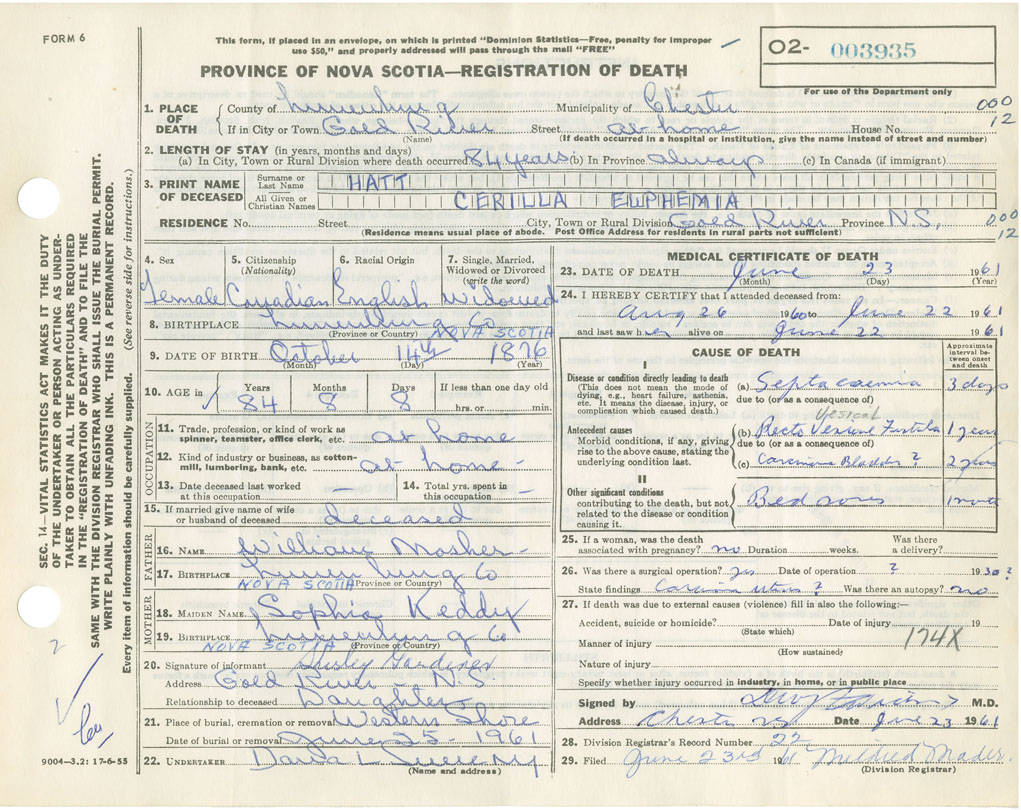 FORM 6
This form, if placed in an envelope, on which is printed "Dominion Statistics—Free, penalty for improper
use $50," and properly addressed will pass through the mail "FREE"
O2- 003935
For use of the Department only
PROVINCE OF NOVA SCOTIA—REGISTRATION OF DEATH
000
12
1. PLACE OF DEATH { County of Lunenburg Municipality of Chester
If in City or Town Gold River Street at home House No.
(Name) (If death occurred in a hospital or institution, give the name instead of street and number)
2. LENGTH OF STAY (in years, months and days)
(a) In City, Town or Rural Division where death occurred 84 years (b) In Province always (c) In Canada (if immigrant)
3. PRINT NAME OF DECEASED
Surname or Last Name HATT
All Given or Christian Names CERILLA EUPHEMIA
RESIDENCE No. Street City, Town or Rural Division Gold River Province N.S.
(Residence means usual place of abode. Post Office Address for residents in rural parts not sufficient)
000
12
4. Sex 5. Citizenship (Nationality) 6. Racial Origin 7. Single, Married, Widowed or Divorced (write the word)
Female Canadian English Widowed
8. BIRTHPLACE Lunenburg Co
(Province or Country) NOVA SCOTIA
9. DATE OF BIRTH October 14th 1876
(Month) (Day) (Year)
10. AGE in Years Months Days If less than one day old
84 8 8 hrs. or min.
OCCUPATION
11. Trade, profession, or kind of work as spinner, teamster, office clerk, etc. at home
12. Kind of industry or business, as cotton-mill, lumbering, bank, etc. at home
13. Date deceased last worked at this occupation — 14. Total yrs. spent in this occupation —
15. If married give name of wife or husband of deceased deceased
FATHER
16. NAME William Mosher
17. BIRTHPLACE Lunenburg Co
NOVA SCOTIA (Province or Country)
MOTHER
18. MAIDEN NAME Sophia Keddy
19. BIRTHPLACE Lunenburg Co
NOVA SCOTIA (Province or Country)
20. Signature of informant
Address Gold River N.S
Relationship to deceased Daughter
21. Place of burial, cremation or removal Western Shore
Date of burial or removal June 25 - 1961
22. UNDERTAKER
(Name and address)
MEDICAL CERTIFICATE OF DEATH
23. DATE OF DEATH June 23 1961
(Month) (Day) (Year)
24. I HEREBY CERTIFY that I attended deceased from:
Aug 26 1960 to June 22 1961
and last saw her alive on June 22 1961
CAUSE OF DEATH
Approximate interval between onset and death
I
Disease or condition directly leading to death
(This does not mean the mode of dying, e.g., heart failure, asthenia, etc. It means the disease, injury, or complication which caused death.)
(a) Septacaemia 3 days
due to (or as a consequence of)
Vesical
Antecedent causes
Morbid conditions, if any, giving rise to the above cause, stating the underlying condition last.
(b) Recto Vesicne Fistula 1 year
due to (or as a consequence of)
(c) Carcinoma Bladder ? 2 years
II
Other significant conditions
contributing to the death, but not related to the disease or condition causing it.
Bed sores 1 month
25. If a woman, was the death associated with pregnancy? no Duration weeks. Was there a delivery?
26. Was there a surgical operation? yes Date of operation ? 1930?
State findings Carcinoma uterus ? Was there an autopsy? no
27. If death was due to external causes (violence) fill in also the following:—
Accident, suicide or homicide? Date of injury 19
(State which)
174X
Manner of injury
(How sustained)
Nature of injury
Specify whether injury occurred in industry, in home, or in public place
Signed by M.D.
Address Chester NS Date June 23 1961
28. Division Registrar's Record Number 22
29. Filed June 23rd 1961 Mildred Mader
(Division Registrar)
SEC. 14—VITAL STATISTICS ACT MAKES IT THE DUTY
OF THE UNDERTAKER OR PERSON ACTING AS UNDER-
TAKER TO OBTAIN ALL THE PARTICULARS REQUIRED
IN THE "REGISTRATION OF DEATH" AND TO FILE THE
SAME WITH THE DIVISION REGISTRAR WHO SHALL ISSUE THE BURIAL PERMIT.
WRITE PLAINLY WITH UNFADING INK. THIS IS A PERMANENT RECORD.
Every item of information should be carefully supplied. (See reverse side for instructions.)
9004-3.2: 17-6-55